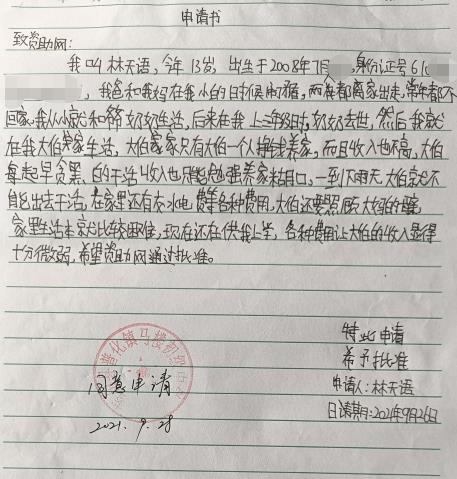 申请书
致资助网：
我叫林天语，今年13岁，出生于2008年7月，身份证号61
，我爸和我妈在我小的时候闹，两

回家，我从小就和爷奶奶生活，后来在我上三年级时，奶奶去世，然后我就
在我大伯家生活，大伯家只有大伯一个人挣钱养家，而且收入也不高，大伯
每起早贪黑的干活收入也只能勉强养家粘口，一到下雨天大伯就不
能出去干活，在家里还有水电费等各种费用，大伯还要照顾大妈的
家里生活本就比较困难，现在还在供我上学，各种费用让大伯的收入显得
十分微弱，希望资助网通过批准。
特此申请
希予批准
申请人：林天语
日请期：2021年9月26日
普化镇马楼
同意申请
2021.9.28